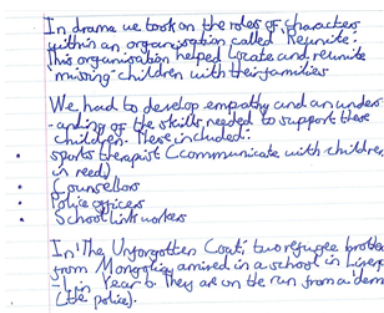 In drama we took on the roles of characters
within an organisation called 'Reunite'.
This organisation helped locate and reunite
'missing' children with their families
We had to develop empathy and an under
-anding of the skills needed to support these
children. These included:
• sports therapist (communicate with children
in need)
• Counsellors
• Police officers
• School link workers
In 'The Unforgotten Coat', two refugee brothe
from Mongolia arrived in a school in Liverp
in Year 6. They are on the run from a dem
(the police).